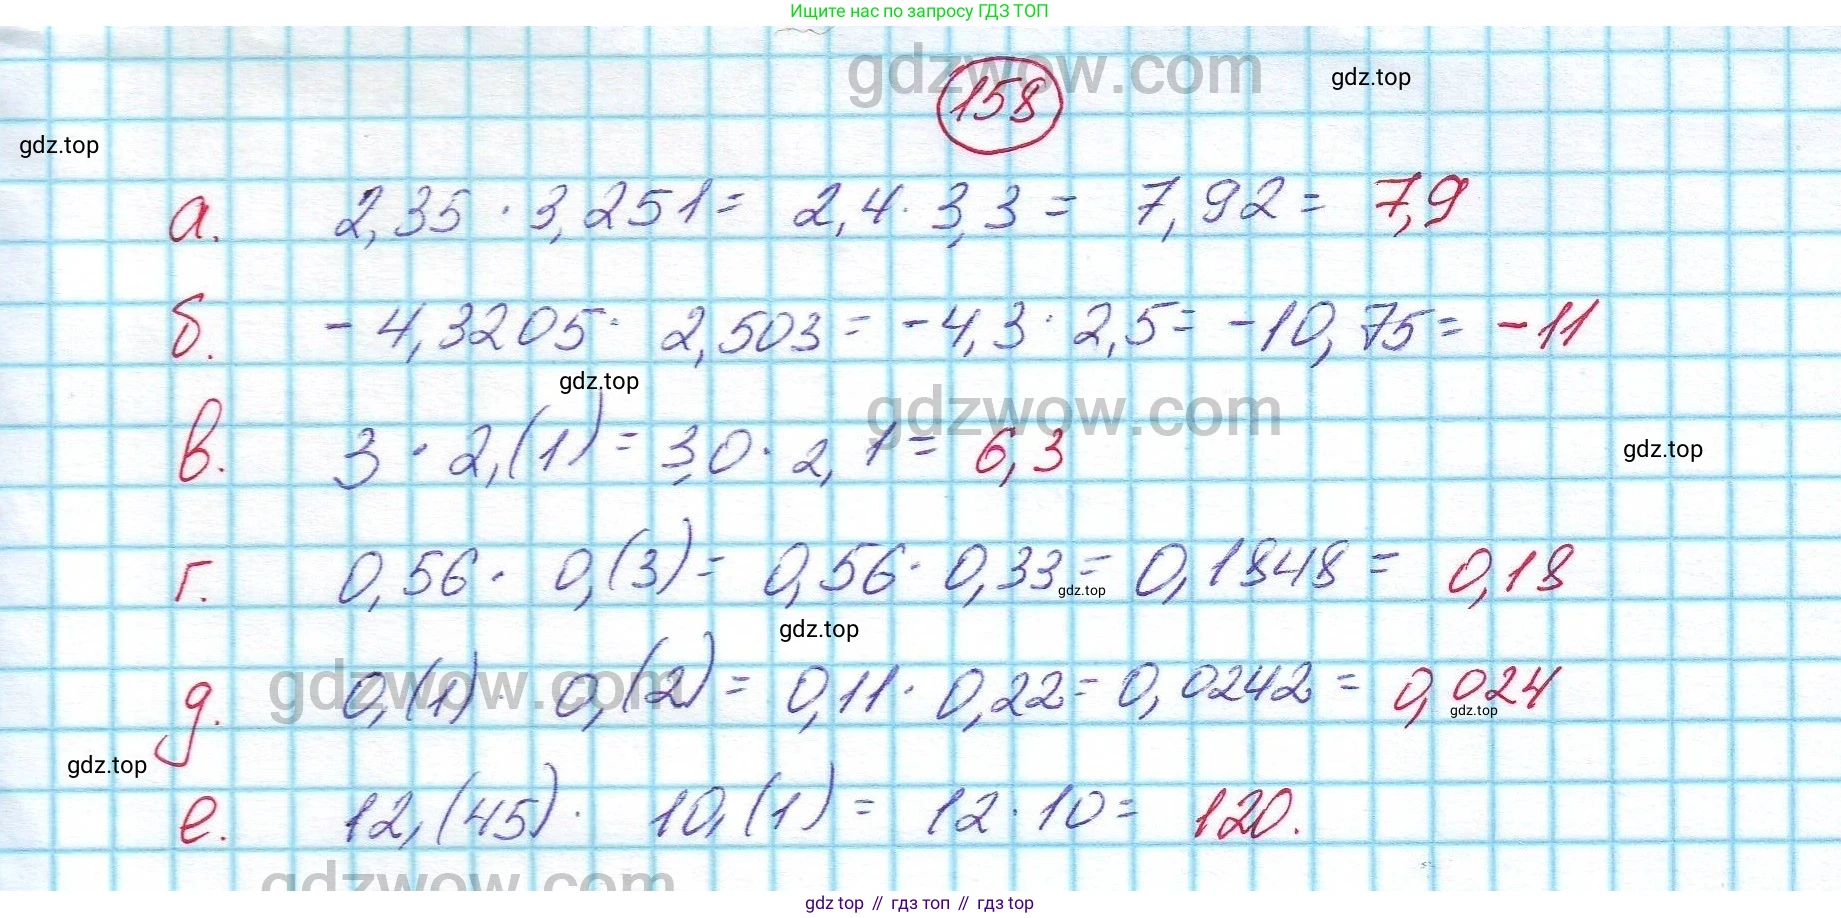 Ищите нас по запросу ГДЗ ТОП
gdzwow.com
gdz.top
158
gdz.top
а. 2,35 · 3,251 = 2,4 · 3,3 = 7,92 = 7,9
б. -4,3205 · 2,503 = -4,3 · 2,5 = -10,75 = -11
gdz.top
gdzwow.com
в. 3 · 2,(1) = 3,0 · 2,1 = 6,3
gdz.top
г. 0,56 · 0,(3) = 0,56 · 0,33 = 0,1848 = 0,18
gdz.top
gdz.top
gdzwow.com
д. 0,(1) · 0,(2) = 0,11 · 0,22 = 0,0242 = 0,024
gdz.top
gdz.top
е. 12,(45) · 10,(1) = 12 · 10 = 120.
gdzwow.com
gdz top // гдз топ // гдз top